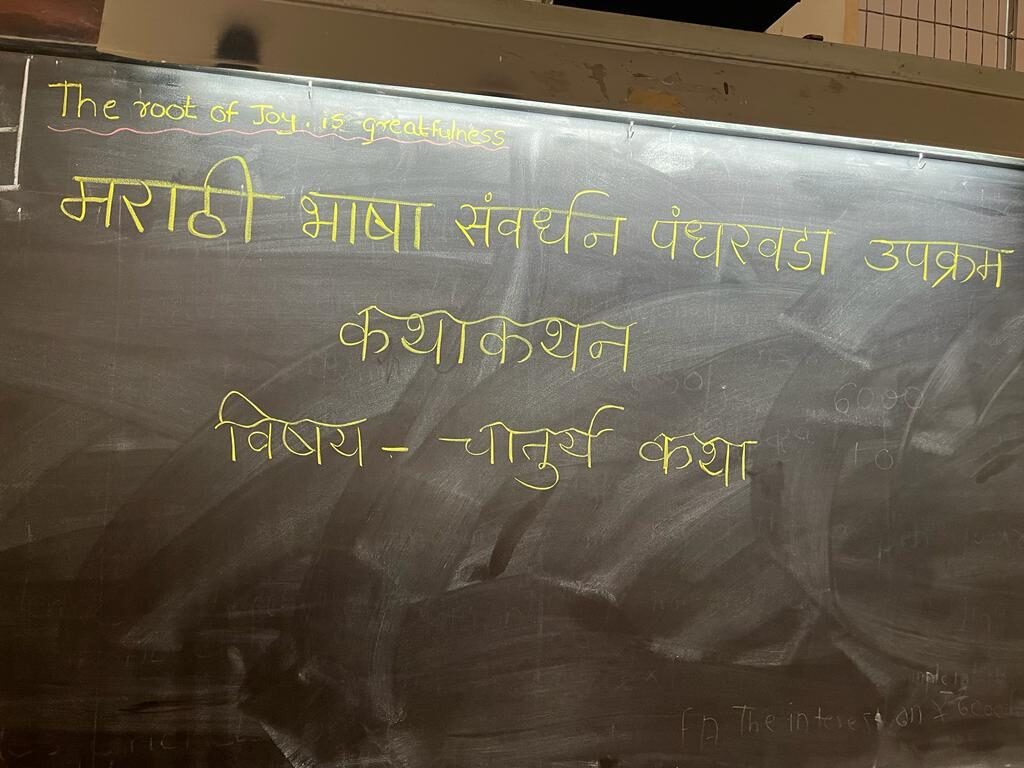 The root of Joy. is greatfulness
मराठी भाषा संवर्धन पंधरवडा उपक्रम
कथाकथन
विषय - चातुर्य कथा
6000
10
The interest on ₹ 6000